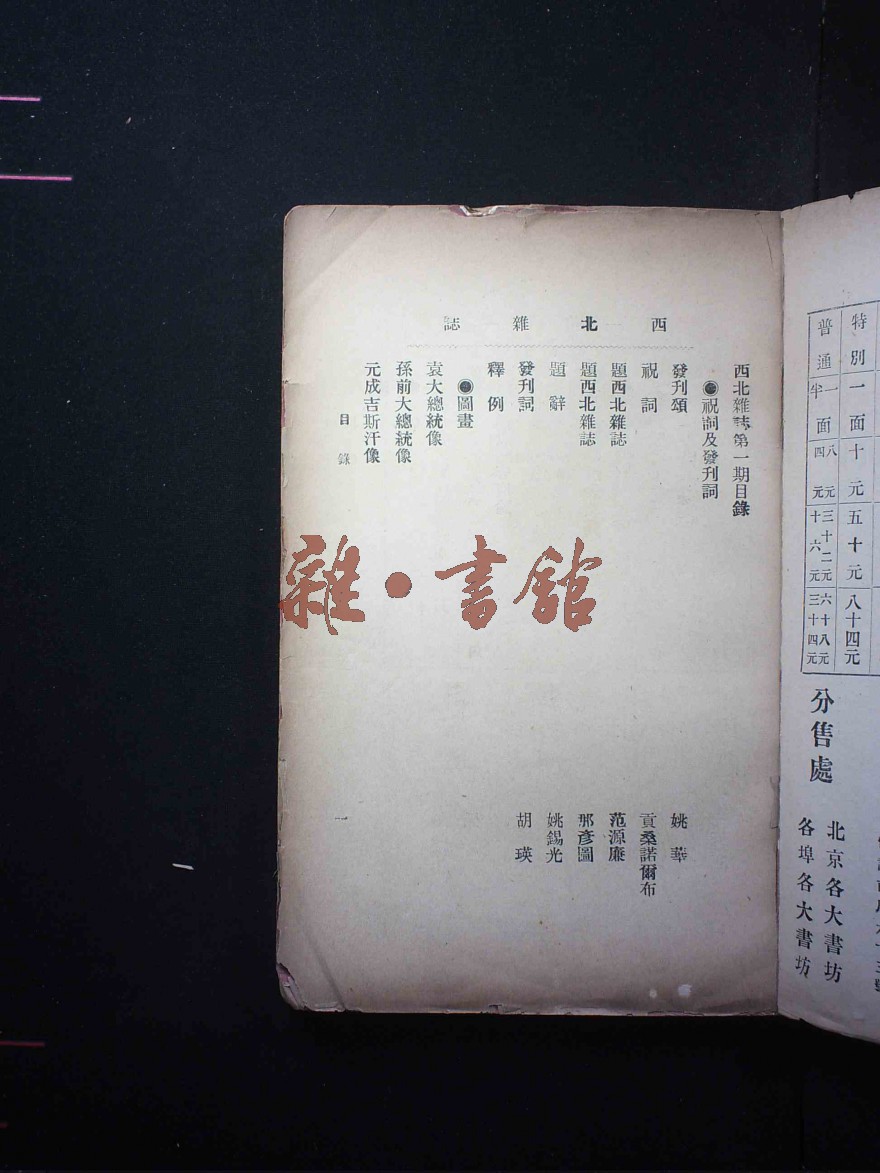 普通 半一面 四八元元 十三十六二元元 三六十十四八元元
特別 一面 十元 五十元 八十四元
分售處
北京各大書坊
各埠各大書坊
西北雜誌
西北雜誌第一期目錄
●祝詞及發刊詞
發刊頌 姚華
祝詞 貢桑諾爾布
題西北雜誌 范源廉
題西北雜誌 那彥圖
題辭 姚錫光
發刊詞 胡瑛
釋例
●圖畫
袁大總統像
孫前大總統像
元成吉斯汗像
目錄 一
雜·書館